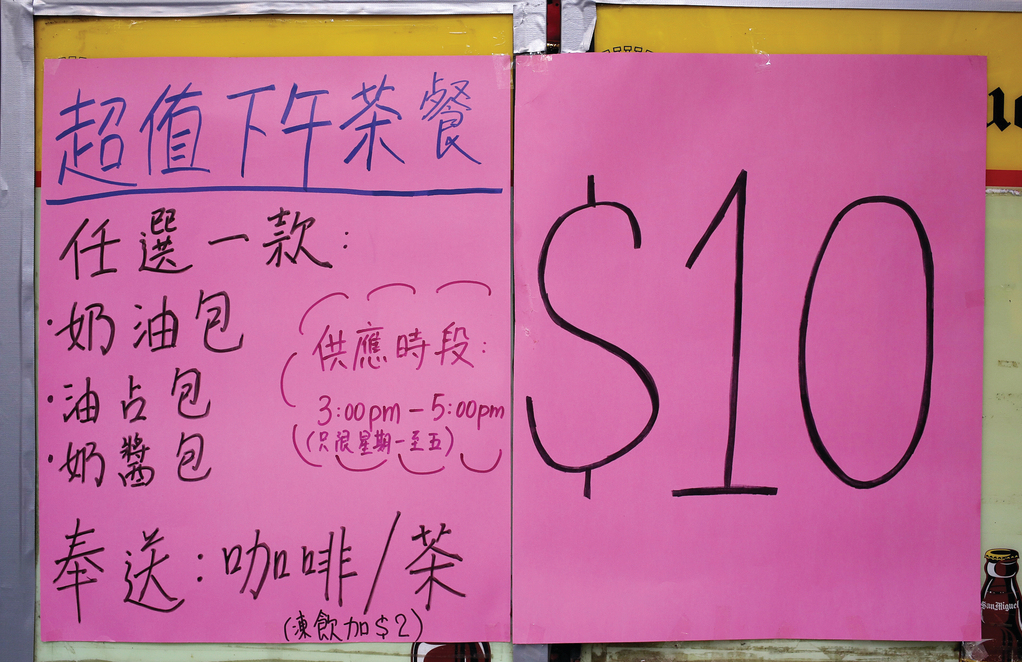 超值下午茶餐
任選一款:
·奶油包
·油占包
·奶醬包
供應時段:
3:00pm-5:00pm
(只限星期一至五)
奉送:咖啡/茶
(凍飲加$2)
$10
San Miguel